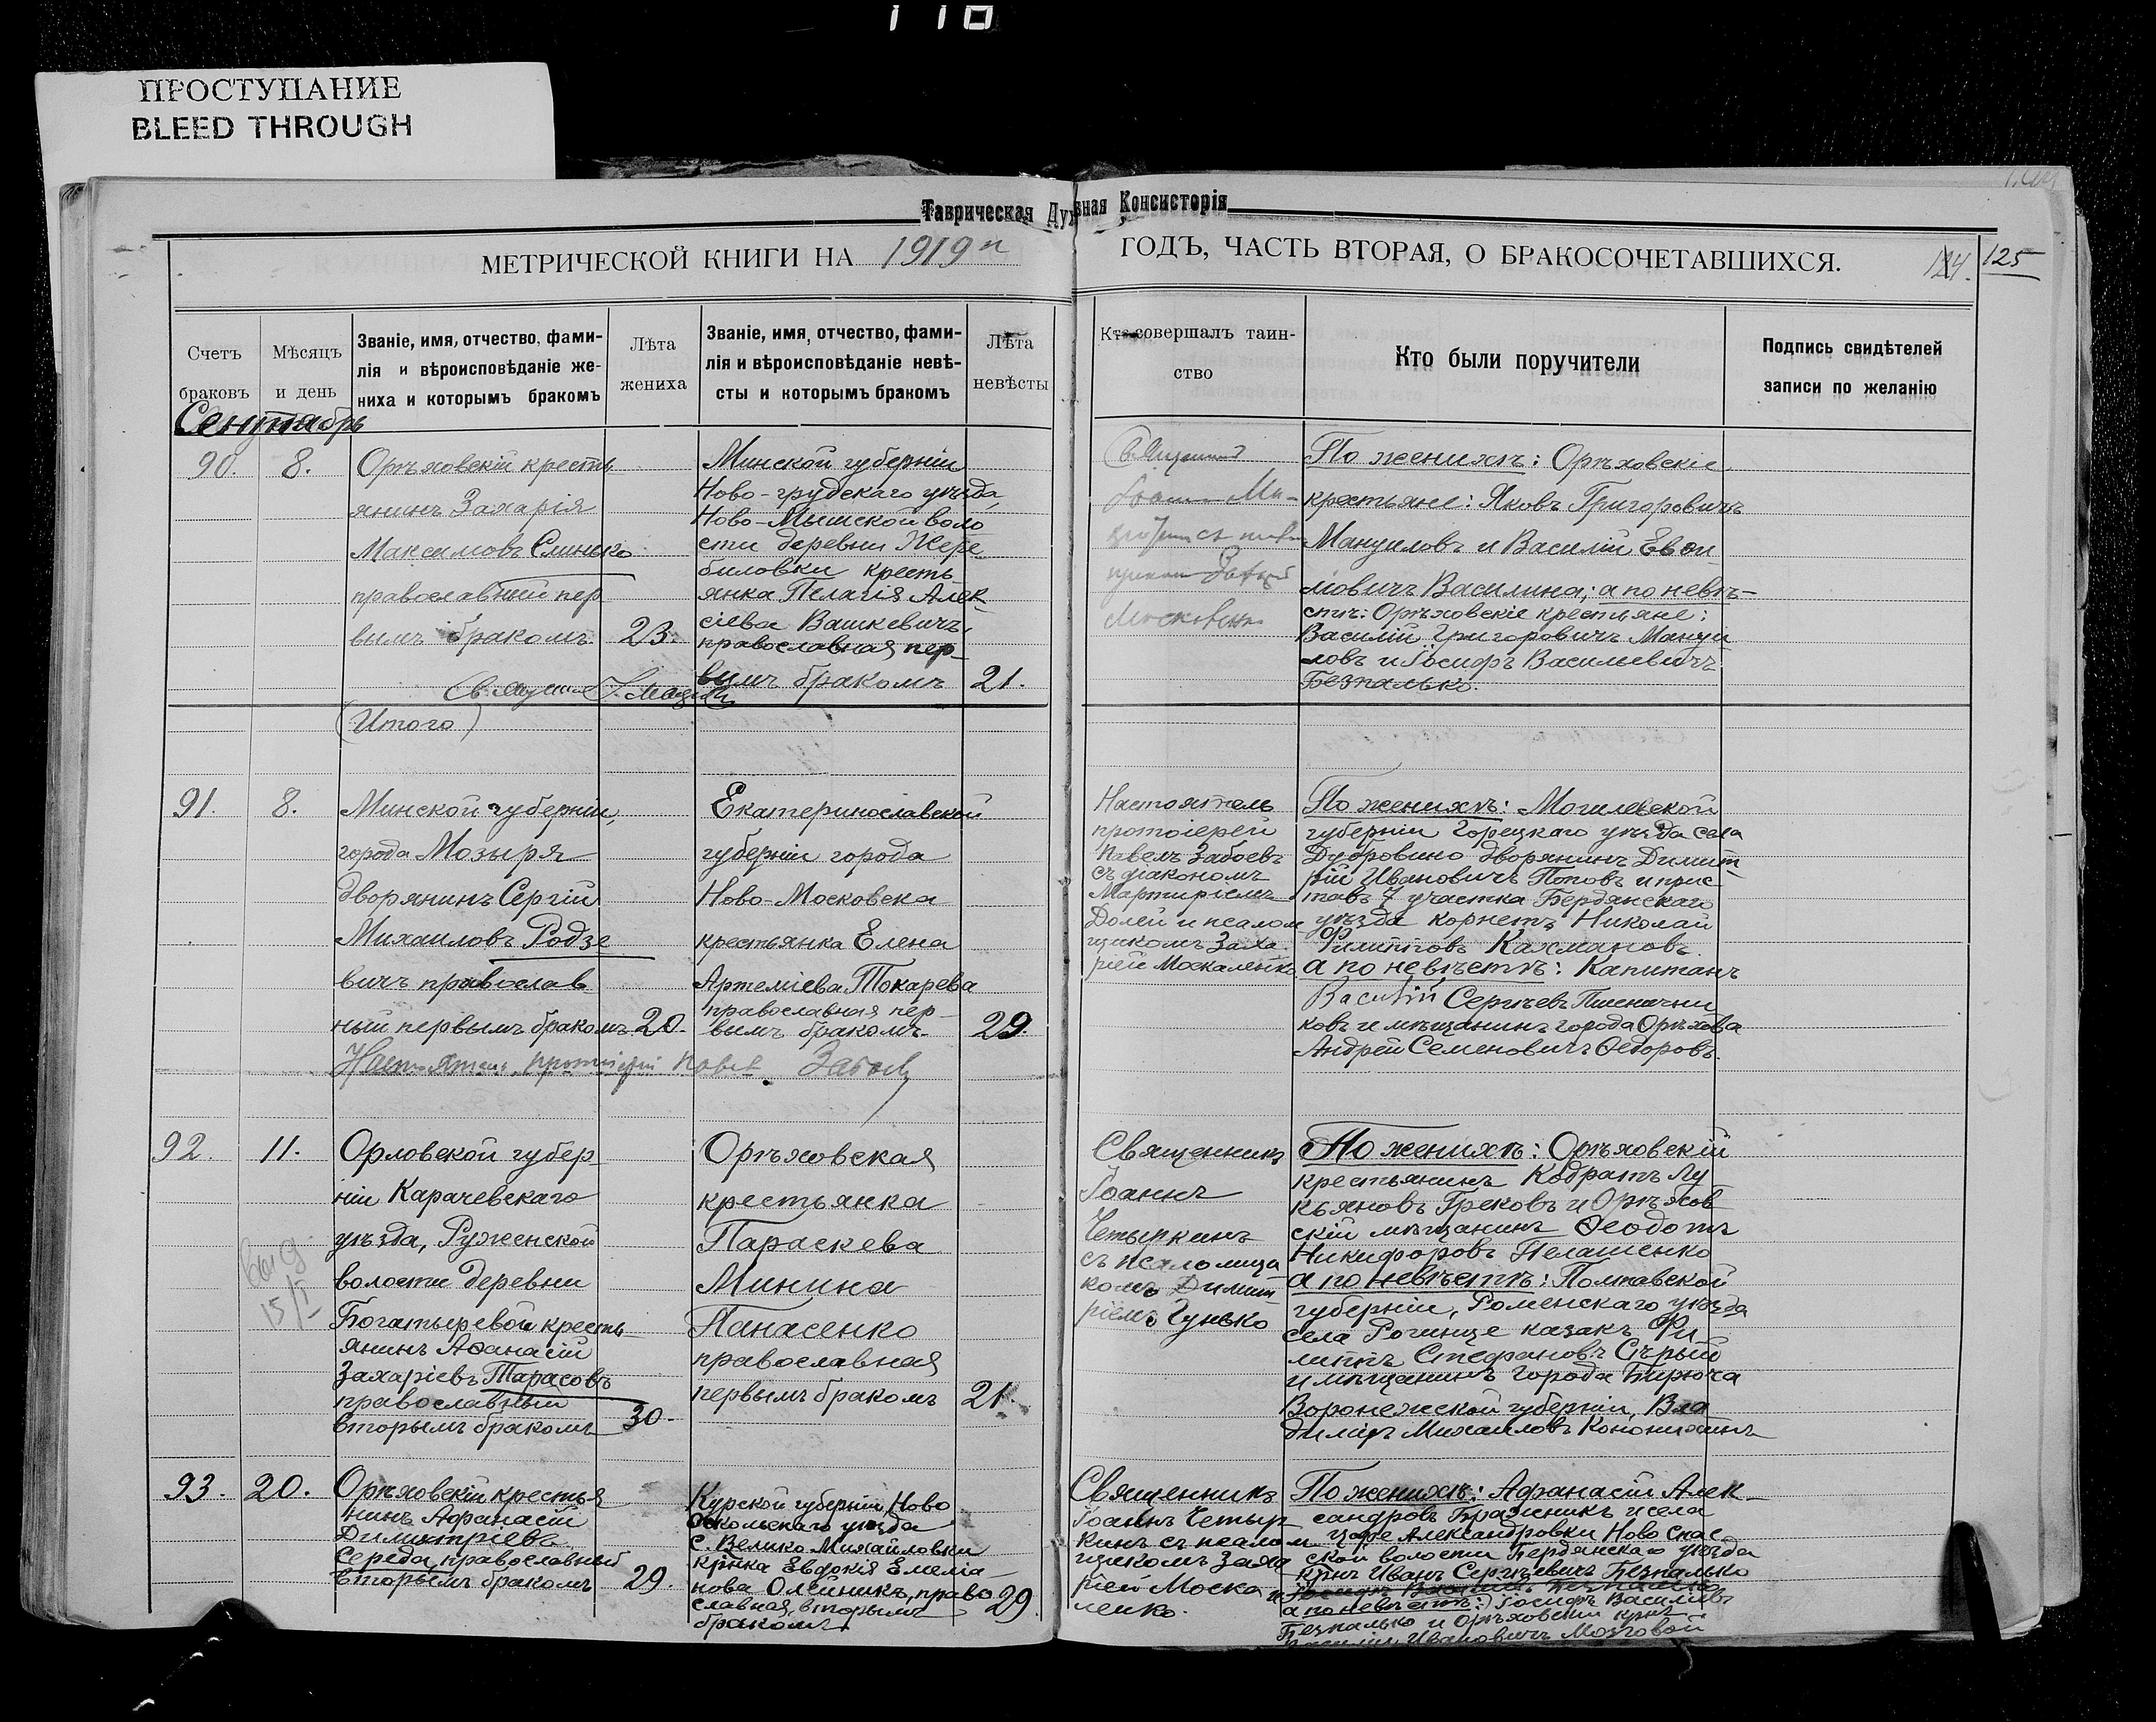 118
ПРОСТУПАНИЕ
BLEED THROUGH
Таврическая Духовная Консисторія
МЕТРИЧЕСКОЙ КНИГИ НА 1919 й ГОДЪ, ЧАСТЬ ВТОРАЯ, О БРАКОСОЧЕТАВШИХСЯ.
124. 125
Счетъ браковъ
Мѣсяцъ и день
Званіе, имя, отчество, фами-
лія и вѣроисповѣданіе же-
ниха и которымъ бракомъ
Лѣта жениха
Званіе, имя, отчество, фами-
лія и вѣроисповѣданіе невѣ-
сты и которымъ бракомъ
Лѣта невѣсты
Кто совершалъ таин-
ство
Кто были поручители
Подпись свидѣтелей
записи по желанію
Сентябрь
90. 8.
Орѣховскій кресть
янинъ Захарія
Максимовъ Слинько
православный пер
вымъ бракомъ. 23.
Минской губерніи
Ново-грудскаго уѣзда,
Ново-Мышской воло
сти деревни Жере
биловки кресть
янка Пелагія Алек
сіева Вашкевичъ,
православная пер-
вымъ бракомъ 21.
Священникъ
Іоаннъ
Москаленко
По женихѣ: Орѣховскіе
крестьяне: Яковъ Григоровичъ
Мануиловъ и Василій Евфи
міовичъ Василина; а по невѣ-
стѣ: Орѣховскіе крестьяне:
Василій Григоровичъ Мануи
ловъ и Іосифъ Васильевичъ
Безпалько.
(Итого)
91. 8.
Минской губерніи,
города Мозыря
дворянинъ Сергій
Михаиловъ Родзе
вичъ православ
ный первымъ бракомъ 20.
Екатеринославской
губерніи города
Ново-Московска
крестьянка Елена
Артеміева Токарева
православная пер-
вымъ бракомъ. 29.
Настоятель протоіерей Павелъ Забоевъ
Настоятель
протоіерей
Павелъ Забоевъ
съ діакономъ
Мартиріемъ
Долей и псалом
щикомъ Заха
ріей Москаленко
По женихѣ: Могилевской
губерніи Горецкаго уѣзда села
Дубровино дворянинъ Димит
рій Ивановичъ Поповъ и прис
тавъ 7 участка Бердянскаго
уѣзда корнетъ Николай
Филипповъ Кахмановъ.
а по невѣстѣ: Капитанъ
Василій Сергѣевъ Пшенични
ковъ и мѣщанинъ города Орѣхова
Андрей Семеновичъ Ѳедоровъ.
92. 11.
выд.
15/I
Орловской губер
ніи Карачевскаго
уѣзда, Руженской
волости деревни
Богатыревой кресть-
янинъ Аѳанасій
Захаріевъ Тарасовъ
православный
вторымъ бракомъ 30.
Орѣховская
крестьянка
Параскева
Минина
Панасенко
православная
первымъ бракомъ 21.
Священникъ
Іоаннъ
Четыркинъ
съ псаломщи
комъ Димит
ріемъ Гунько
По женихѣ: Орѣховскій
крестьянинъ Кодратъ Лу
кьяновъ Грековъ и Орѣхов
скій мѣщанинъ Ѳеодотъ
Никифоровъ Пелашенко
а по невѣстѣ: Полтавской
губерніи, Роменскаго уѣзда
села Рогинце казакъ Фи
липпъ Стефановъ Сѣрый
и мѣщанинъ города Бирюча
Воронежской губерніи, Вла
диміръ Михаиловъ Конопихинъ
93. 20.
Орѣховскій крестья
нинъ Аѳанасій
Димитріевъ
Середа, православный
вторымъ бракомъ 29.
Курской губерніи, Ново
оскольскаго уѣзда
с. Велико-Михайловки
крнка Евдокія Емеліа-
нова Олейникъ, право
славная, вторымъ
бракомъ. 29.
Священникъ
Іоаннъ Четыр
кинъ съ псалом
щикомъ Заха
ріей Моска
ленко.
По женихѣ: Афанасій Алек-
сандровъ Бражникъ и села
Александровки Ново Спас
ской волости Бердянскаго уѣзда
крнъ Иванъ Сергѣевичъ Безпалько
а по невѣстѣ: Іосифъ Васильевъ
Безпалько и Орѣховскій крнъ
Василій Ивановичъ Мозговой